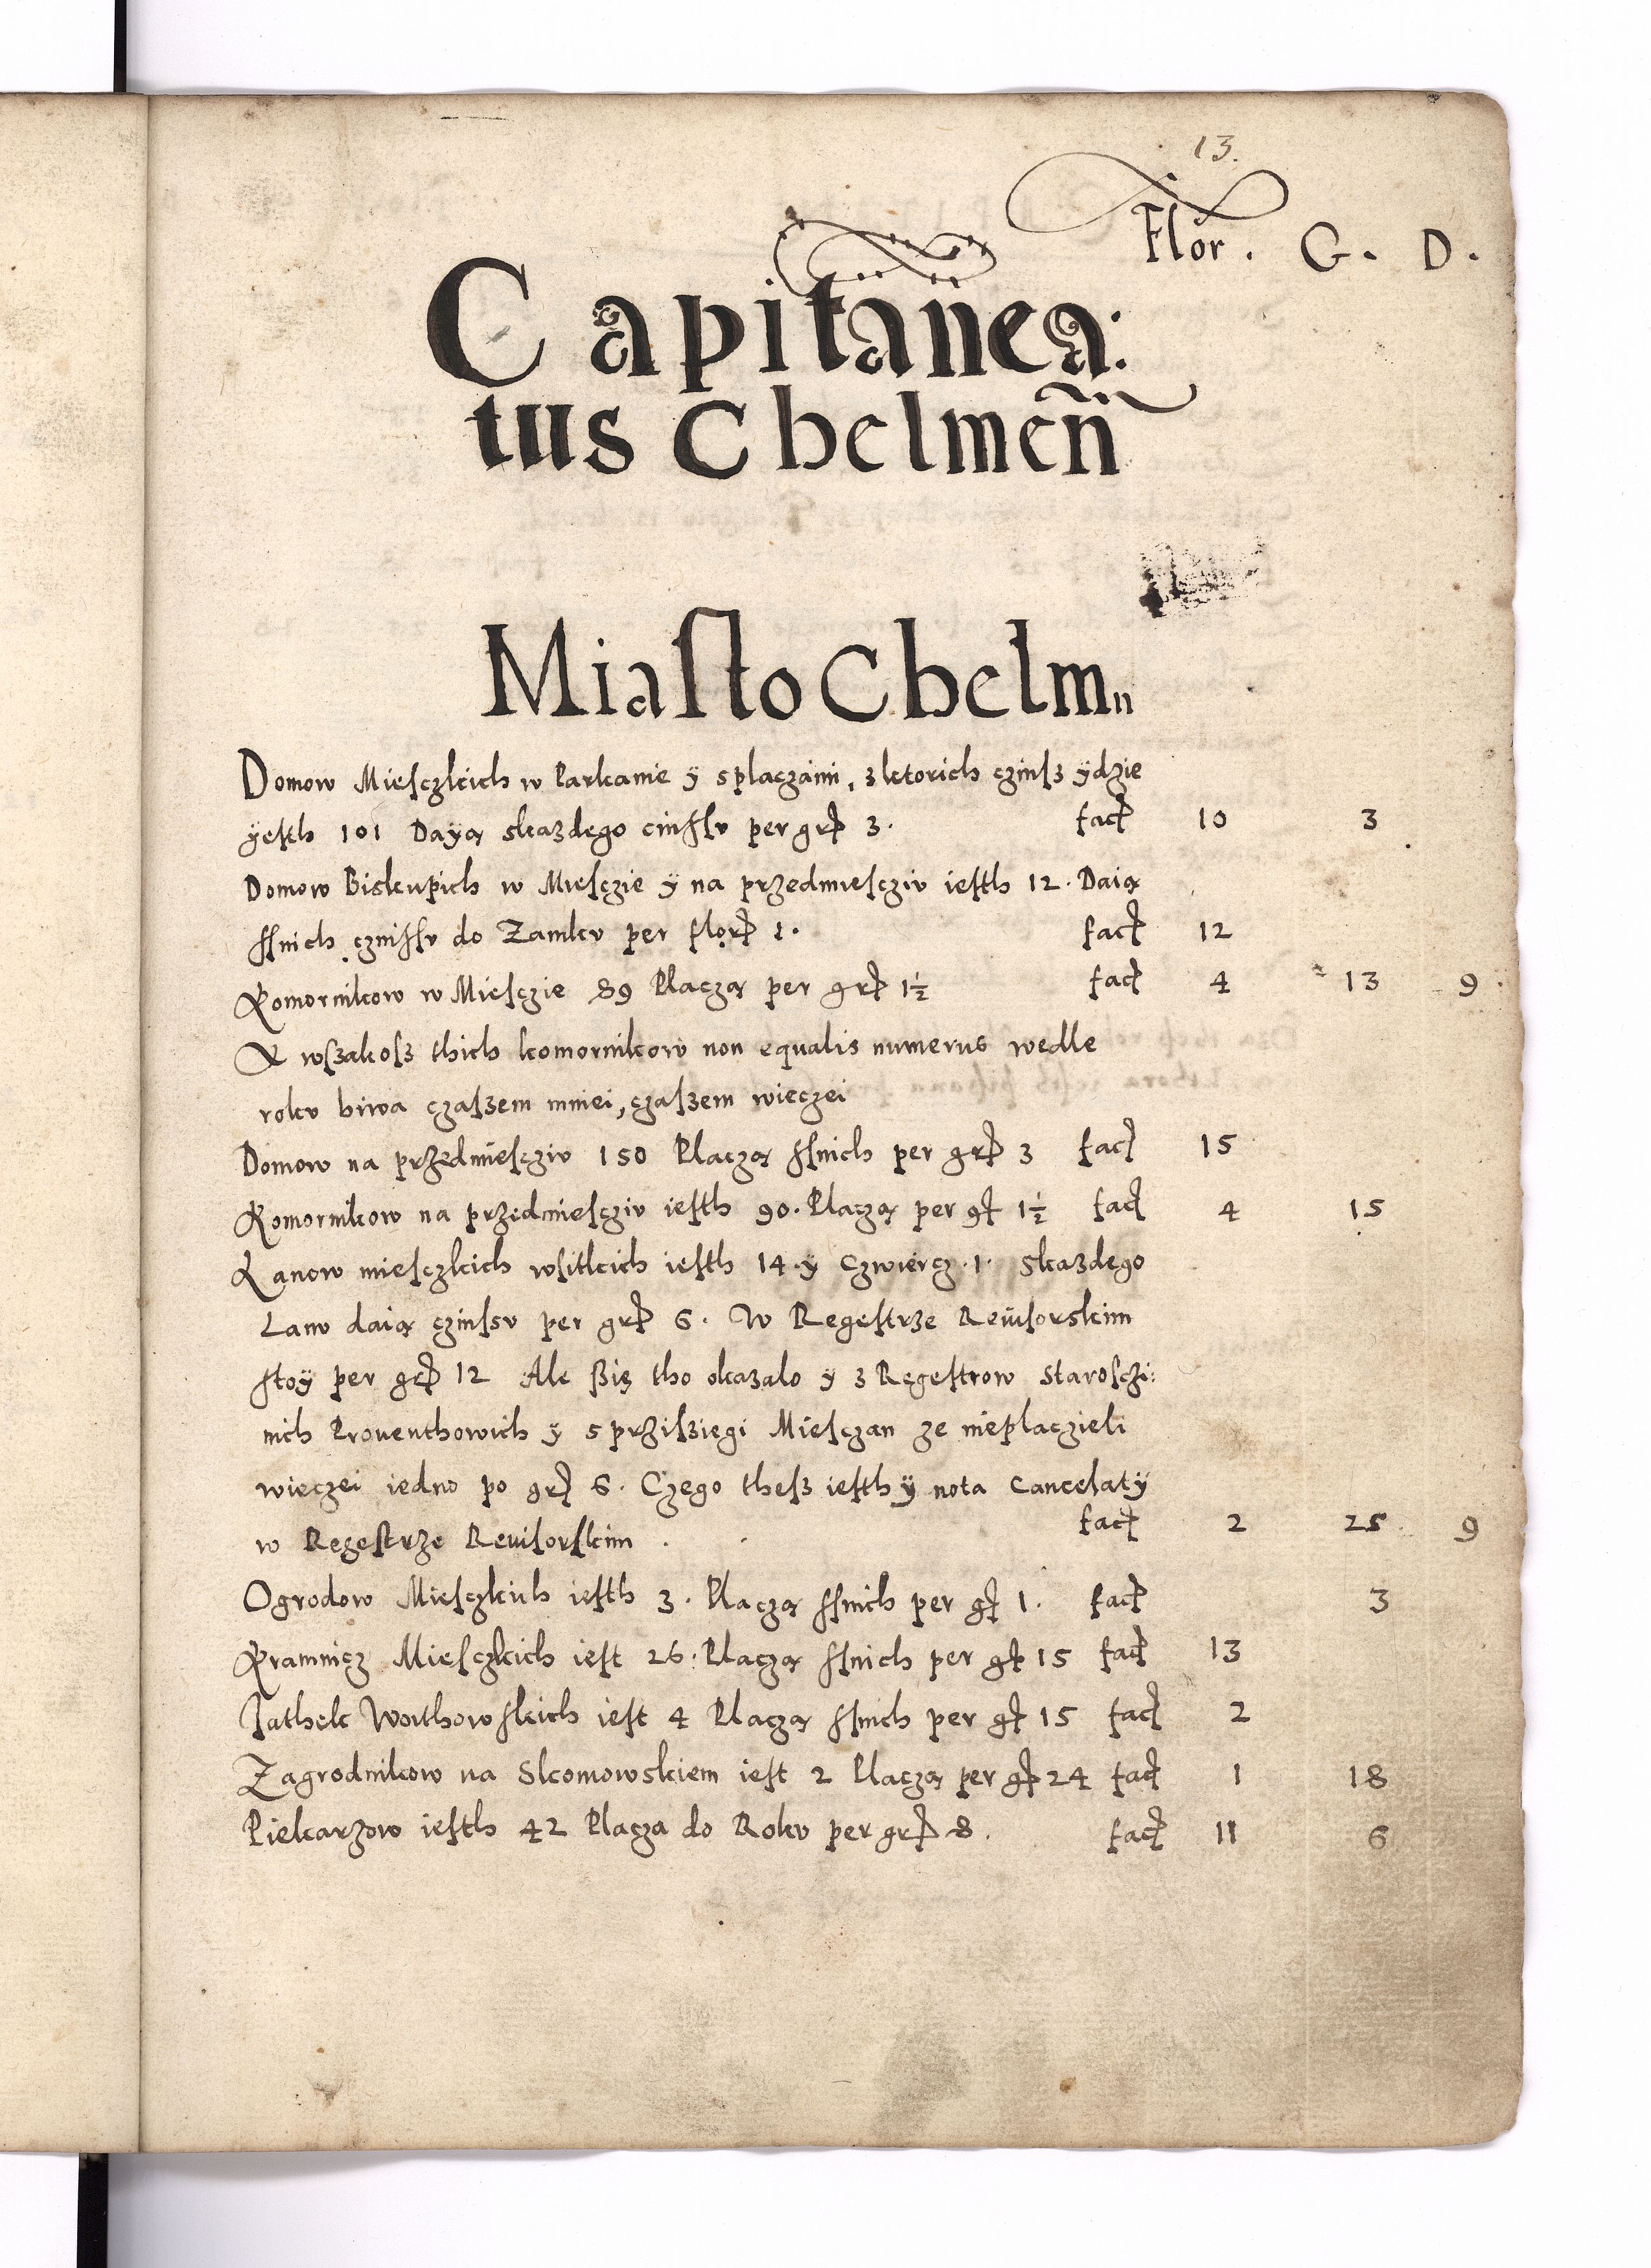 13.
Flor. G. D.
Capitanea:
tus Chelmeñ
Miaſto Chelmn
Domow Mieſczkich w Parkanie ÿ s placzami, z ktorich czinſz ÿdzie
ÿeſth 101 Daÿą skazdego cinſſv per grꝭ 3. facꝭ 10 3
Domow Biskupich w Mieſczie ÿ na przedmieſcziv ieſth 12. Daią
ſſnich czniſſv do Zamkv per florꝭ 1. facꝭ 12
Komornikow w Mieſczie 89 Placzą per grꝭ 1½ facꝭ 4 13 9
A wſzakoſz thich komornikow non equalis numerus wedle
rokv biwa czaſzem mniei, czaſzem wieczei
Domow na przedmieſcziv 150 Placzą ſſnich per grꝭ 3 facꝭ 15
Komornikow na przedmieſcziv ieſth 90. Placzą per gꝭ 1½ facꝭ 4 15
Lanow mieſczkich wſitkich ieſth 14 ÿ Czwiercz. 1. Skazdego
Lanv daią czinſsv per grꝭ 6. W Regeſtrze Reuiſorskim
ſtoÿ per grꝭ 12 Ale ſzię tho okazalo ÿ z Regeſtrow Staroſczi:
nich Prouenthowich ÿ s prziſziegi Mieſczan ze nieplaczieli
wieczei iedno po grꝭ 6. Czego theſz ieſth ÿ nota Cancelatÿ
w Regeſtrze Reuiſorſkim. facꝭ 2 25 9
Ogrodow Mieſczkich ieſth 3. Placzą ſſnich per gꝭ 1. facꝭ 3
Kramnicz Mieſczkich ieſt 26. Placzą ſſnich per gꝭ 15 facꝭ 13
Jathek Woithowſkich ieſt 4 Placzą ſſnich per gꝭ 15 facꝭ 2
Zagrodnikow na Skomowskiem ieſt 2 Placzą per gꝭ 24 facꝭ 1 18
Piekarzow ieſth 42 Placza do Rokv per grꝭ 8. facꝭ 11 6